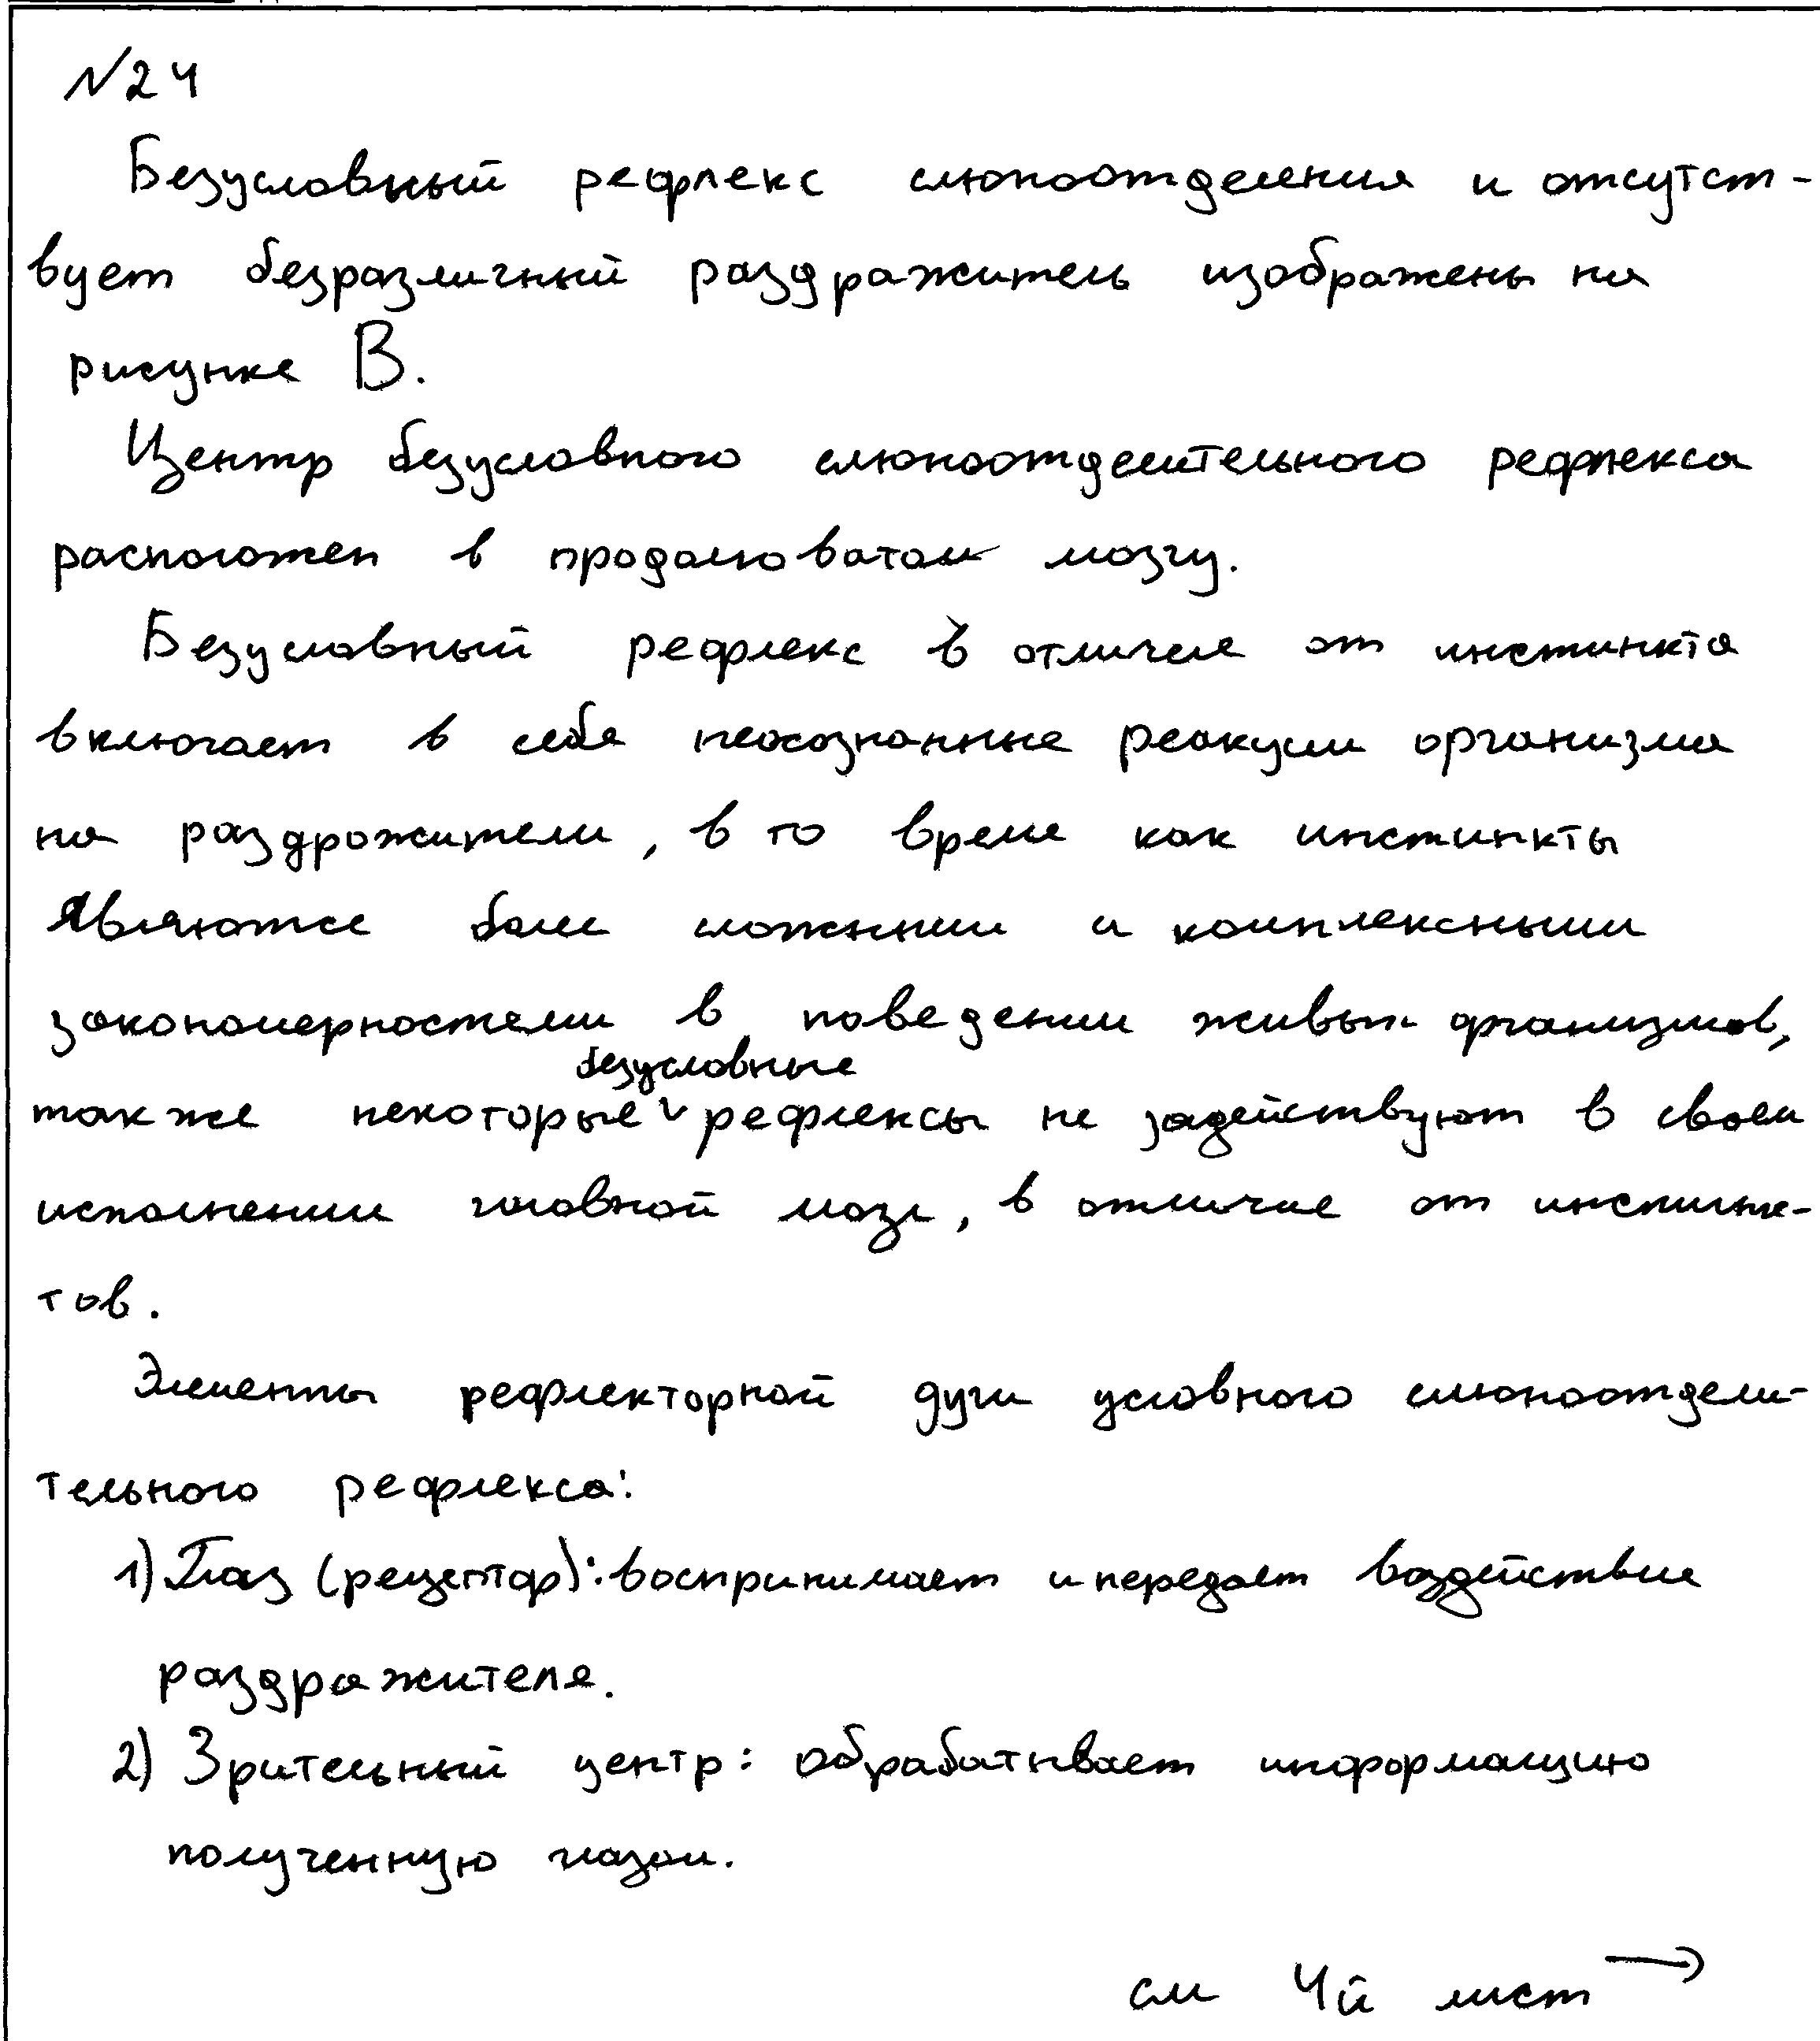 №24
Безусловный рефлекс слюноотделения и отсутст-
вует безразличный раздражитель изображены на
рисунке В.
Центр безусловного слюноотделительного рефлекса
расположен в продолговатом мозгу.
Безусловный рефлекс в отличие от инстинкта
включает в себя неосознанные реакции организма
на раздрожители, в то время как инстинкты
являются более сложными и комплексными
закономерностями в поведении живых организмов,
безусловные
также некоторые ∨ рефлексы не задействуют в своем
исполнении головной мозг, в отличие от инстинк-
тов.
Элементы рефлекторной дуги условного слюноотдели-
тельного рефлекса:
1) Глаз (рецептор): воспринимает и передает воздействие
раздражителя.
2) Зрительный центр: обрабатывает информацию
полученную глазом.
см 4й лист →